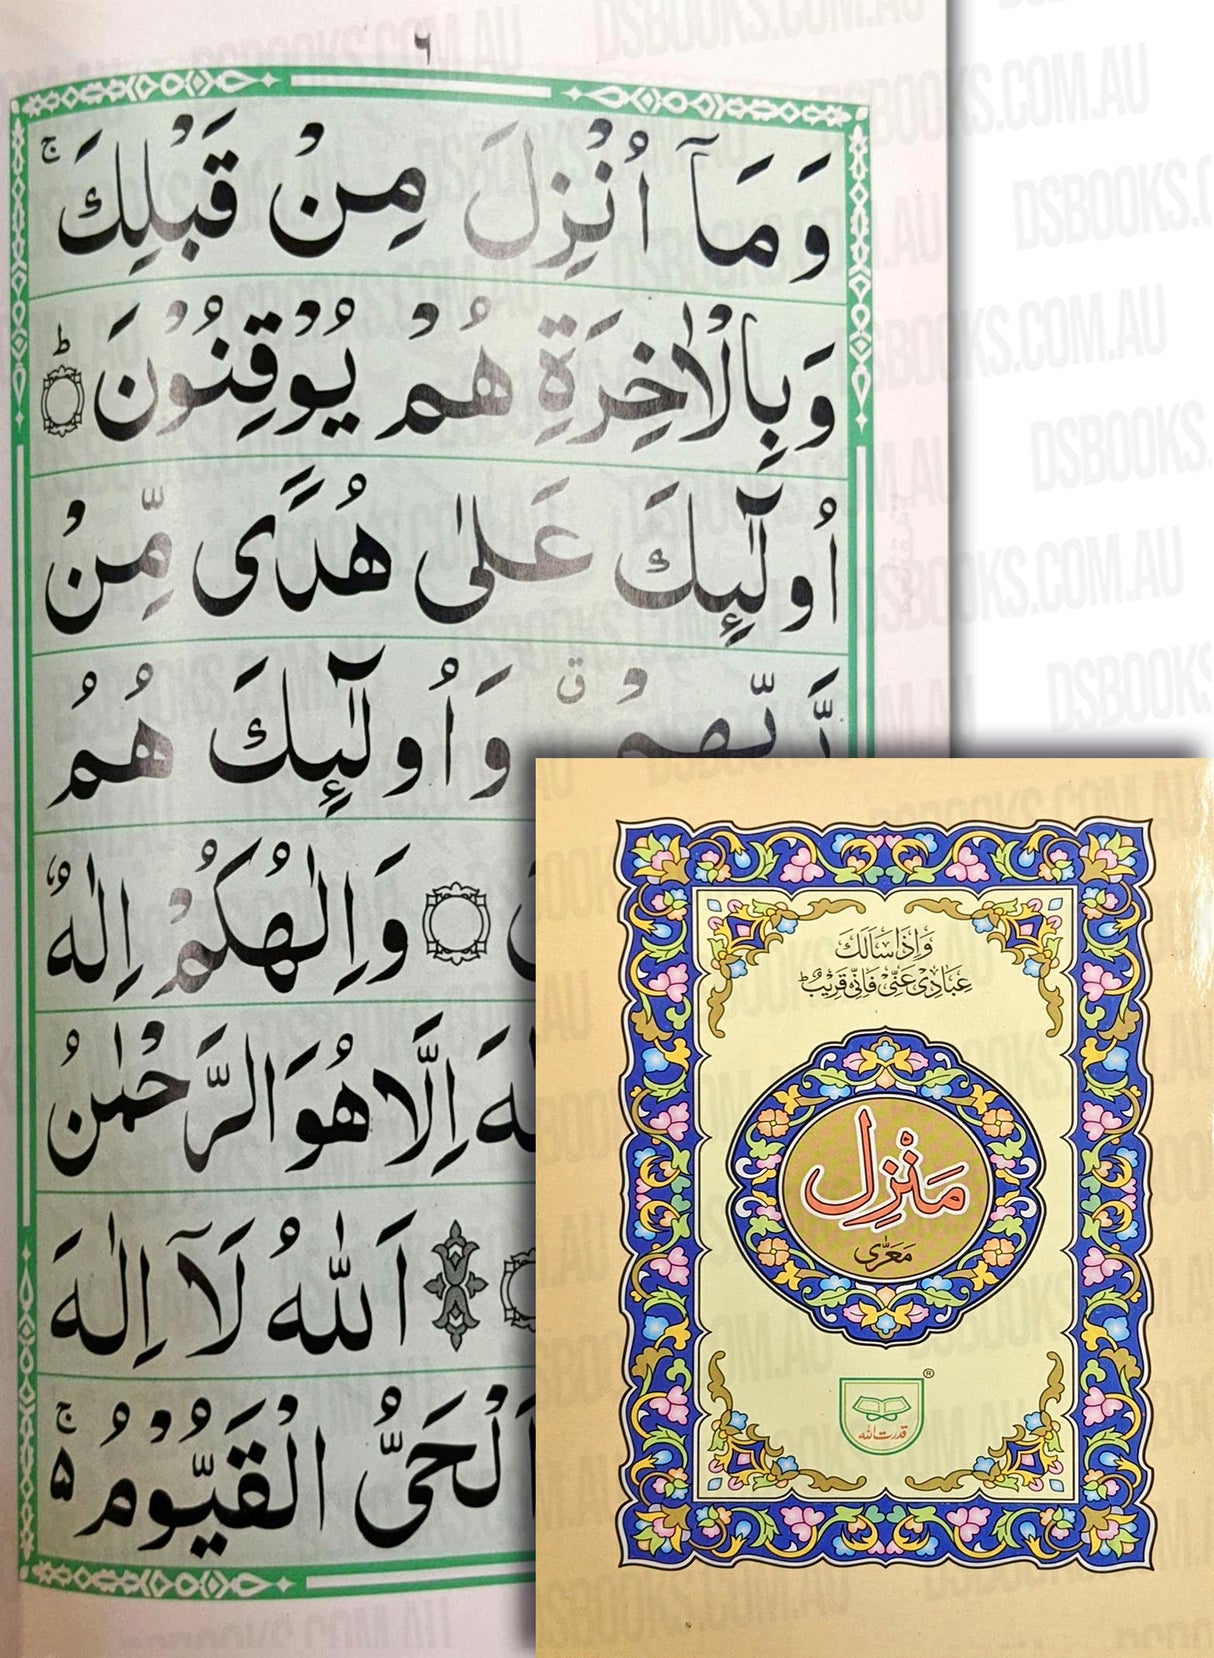 ۶
وَمَآ اُنْزِلَ مِنْ قَبْلِكَ ۚ
وَبِالْاٰخِرَةِ هُمْ يُوْقِنُوْنَ ؕ
اُولٰٓئِكَ عَلٰى هُدًى مِّنْ
رَّبِّهِمْ ۗ وَاُولٰٓئِكَ هُمُ
وَاِلٰهُكُمْ اِلٰهٌ
اِلَّا هُوَ الرَّحْمٰنُ
اَللّٰهُ لَآ اِلٰهَ
اَلْحَيُّ الْقَيُّوْمُ ۚ ۵
وَاِذَا سَاَلَكَ
عِبَادِیْ عَنِّیْ فَاِنِّیْ قَرِیْبٌ ؕ
مَنْزِل
مَعَرّٰی
®
قدرت الله
DSBOOKS.COM.AU